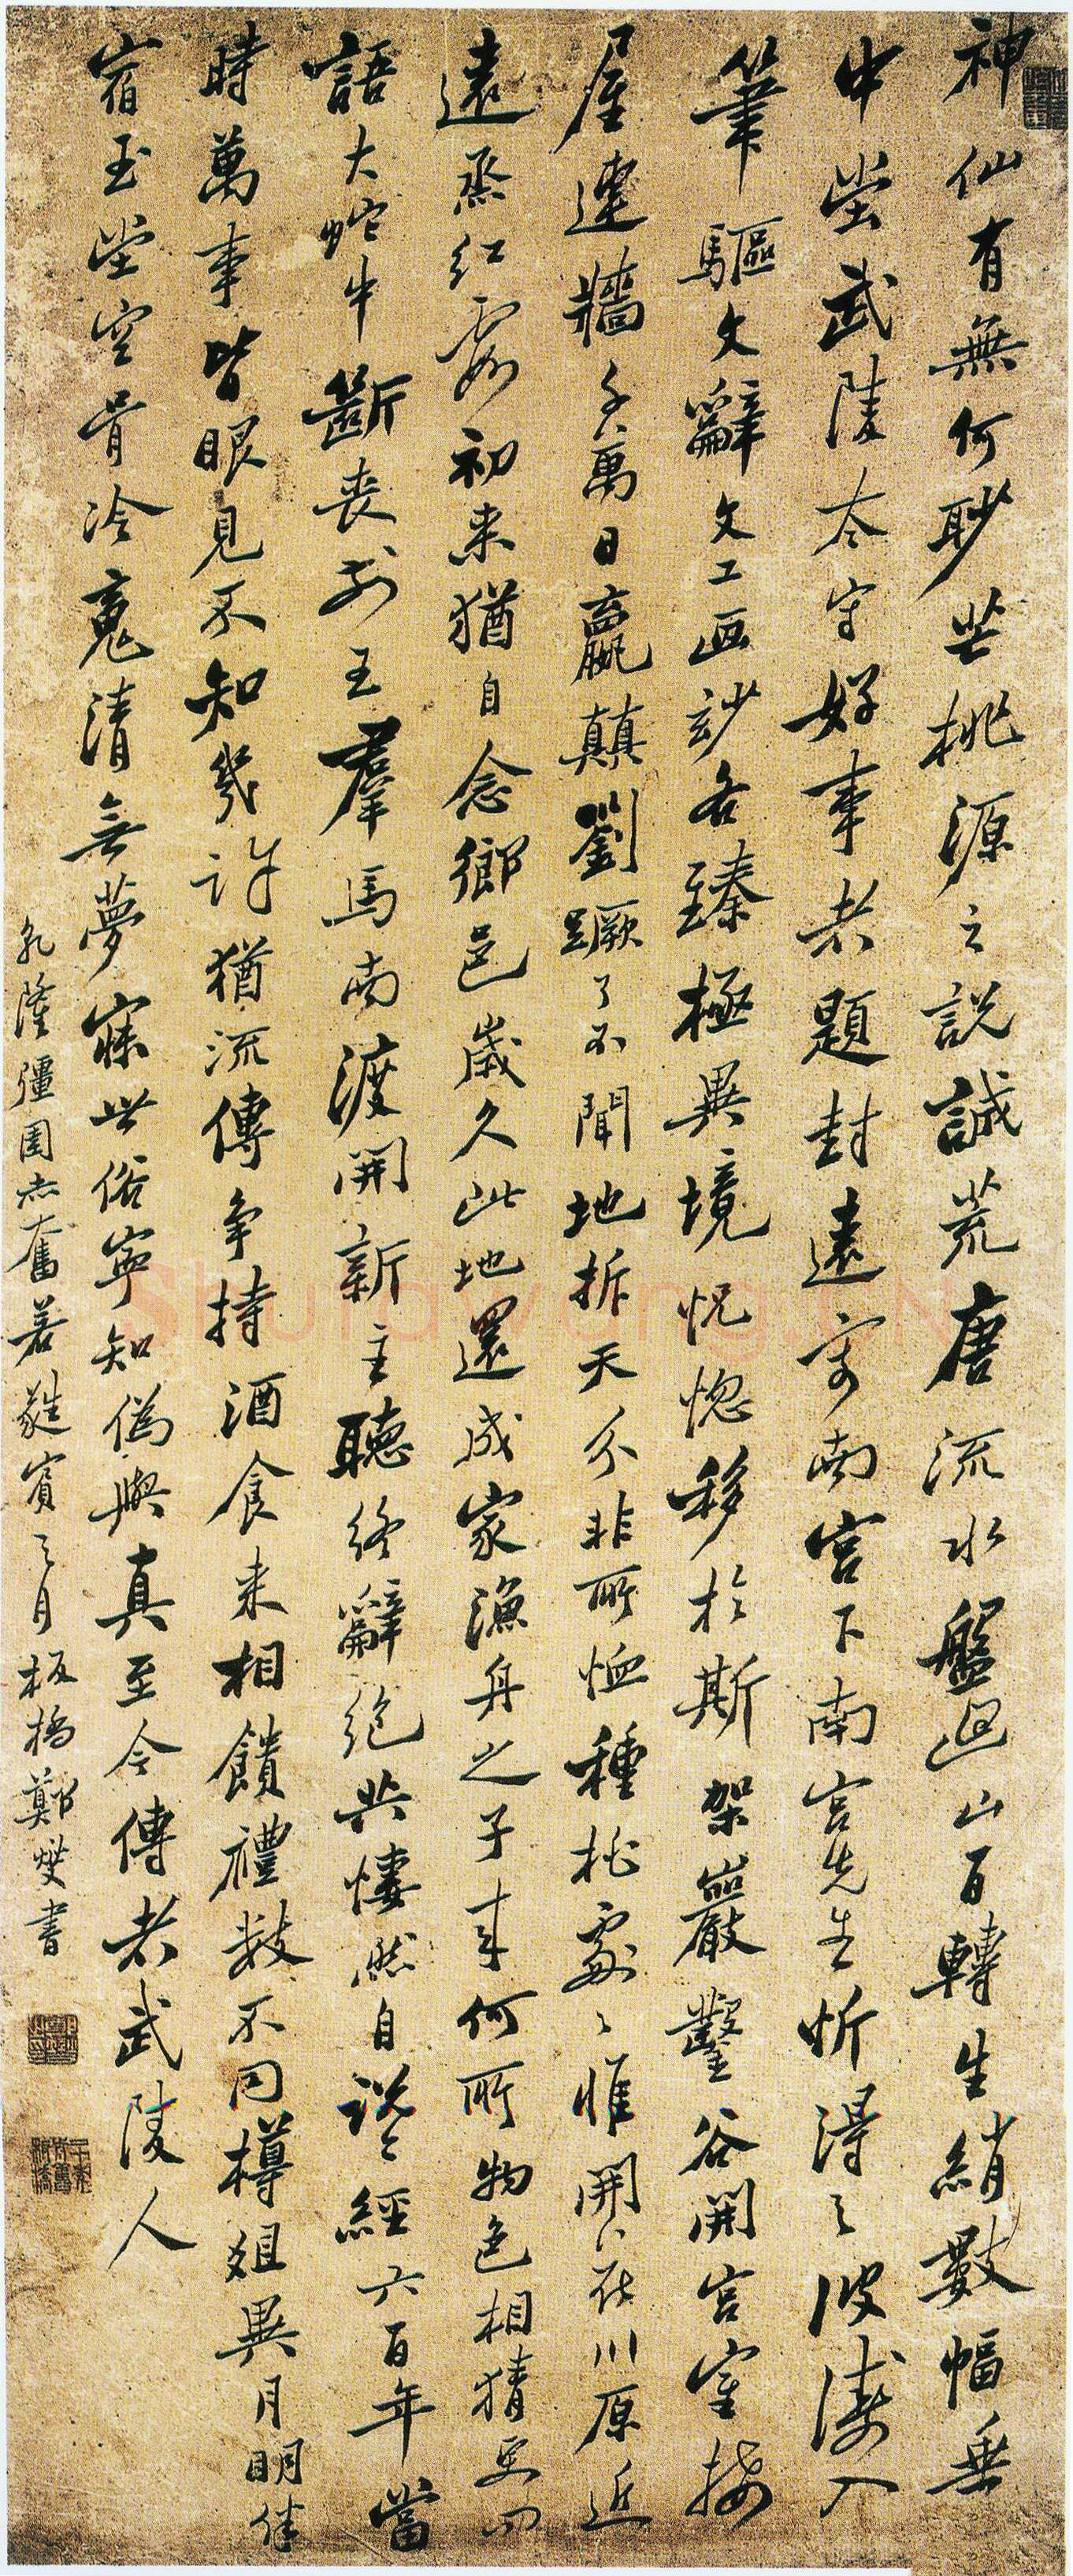 神仙有無何眇芒桃源之說誠荒唐流水盤迴山百轉生綃數幅垂
中堂武陵太守好事者題封遠寄南宮下南宮先生忻得之波濤入
筆驅文辭文工画妙各臻極異境怳惚移於斯架巖鑿谷開宮室接
屋連牆千萬日嬴顛劉蹶了不聞地拆天分非所恤種桃處〻惟開花川原近
遠蒸紅霞初来猶自念鄉邑歲久此地還成家漁舟之子来何所物色相猜更問
語大蛇中斷喪前王羣馬南渡開新主聽終辭絶共悽然自說經六百年當
時萬事皆眼見不知幾許猶流傳争持酒食来相饋禮數不同樽俎異月明伴
宿玉堂空骨冷魂清無夢寐世俗寧知偽與真至今傳者武陵人
乾隆彊圉赤奮若蕤賓之月板橋鄭燮書
Shufawang.CN